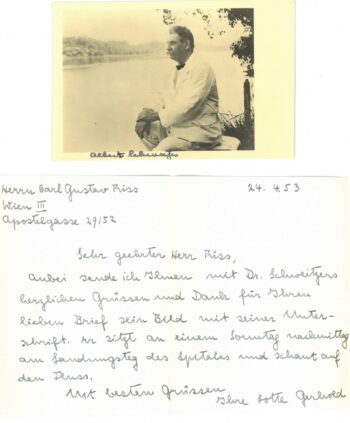 Albert Schweitzer
Herrn Carl Gustav Friss 24. 4. 53
Wien III
Apostelgasse 29/52
Sehr geehrter Herr Friss,
anbei sende ich Ihnen mit Dr. Schweitzers
herzlichen Grüssen und Dank für Ihren
lieben Brief sein Bild mit seiner Unter-
schrift. Er sitzt an einem Sonntag nachmittag
am Landungssteg des Spitales und schaut auf
den Fluss.
Mit besten Grüssen
Ihre Lotte Gerhold